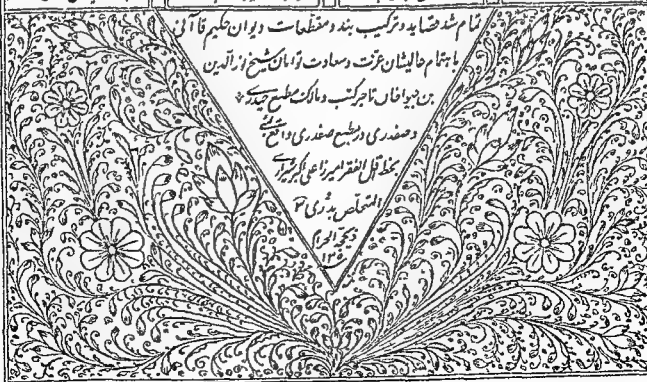 تمام شد قصاید و ترکیب بند و مقطعات دیوان حکیم قاآنی
باهتمام عالیشان عزت و سعادت توامان شیخ نورالدین
بن جیواخان تاجر کتب و مالک مطبع حیدری
و صفدری در مطبع صفدری واقع بمبئی
بخط اقل الفقرا میرزا علی اکبر شیرازی
المتخلص
ذیحجة الحرام